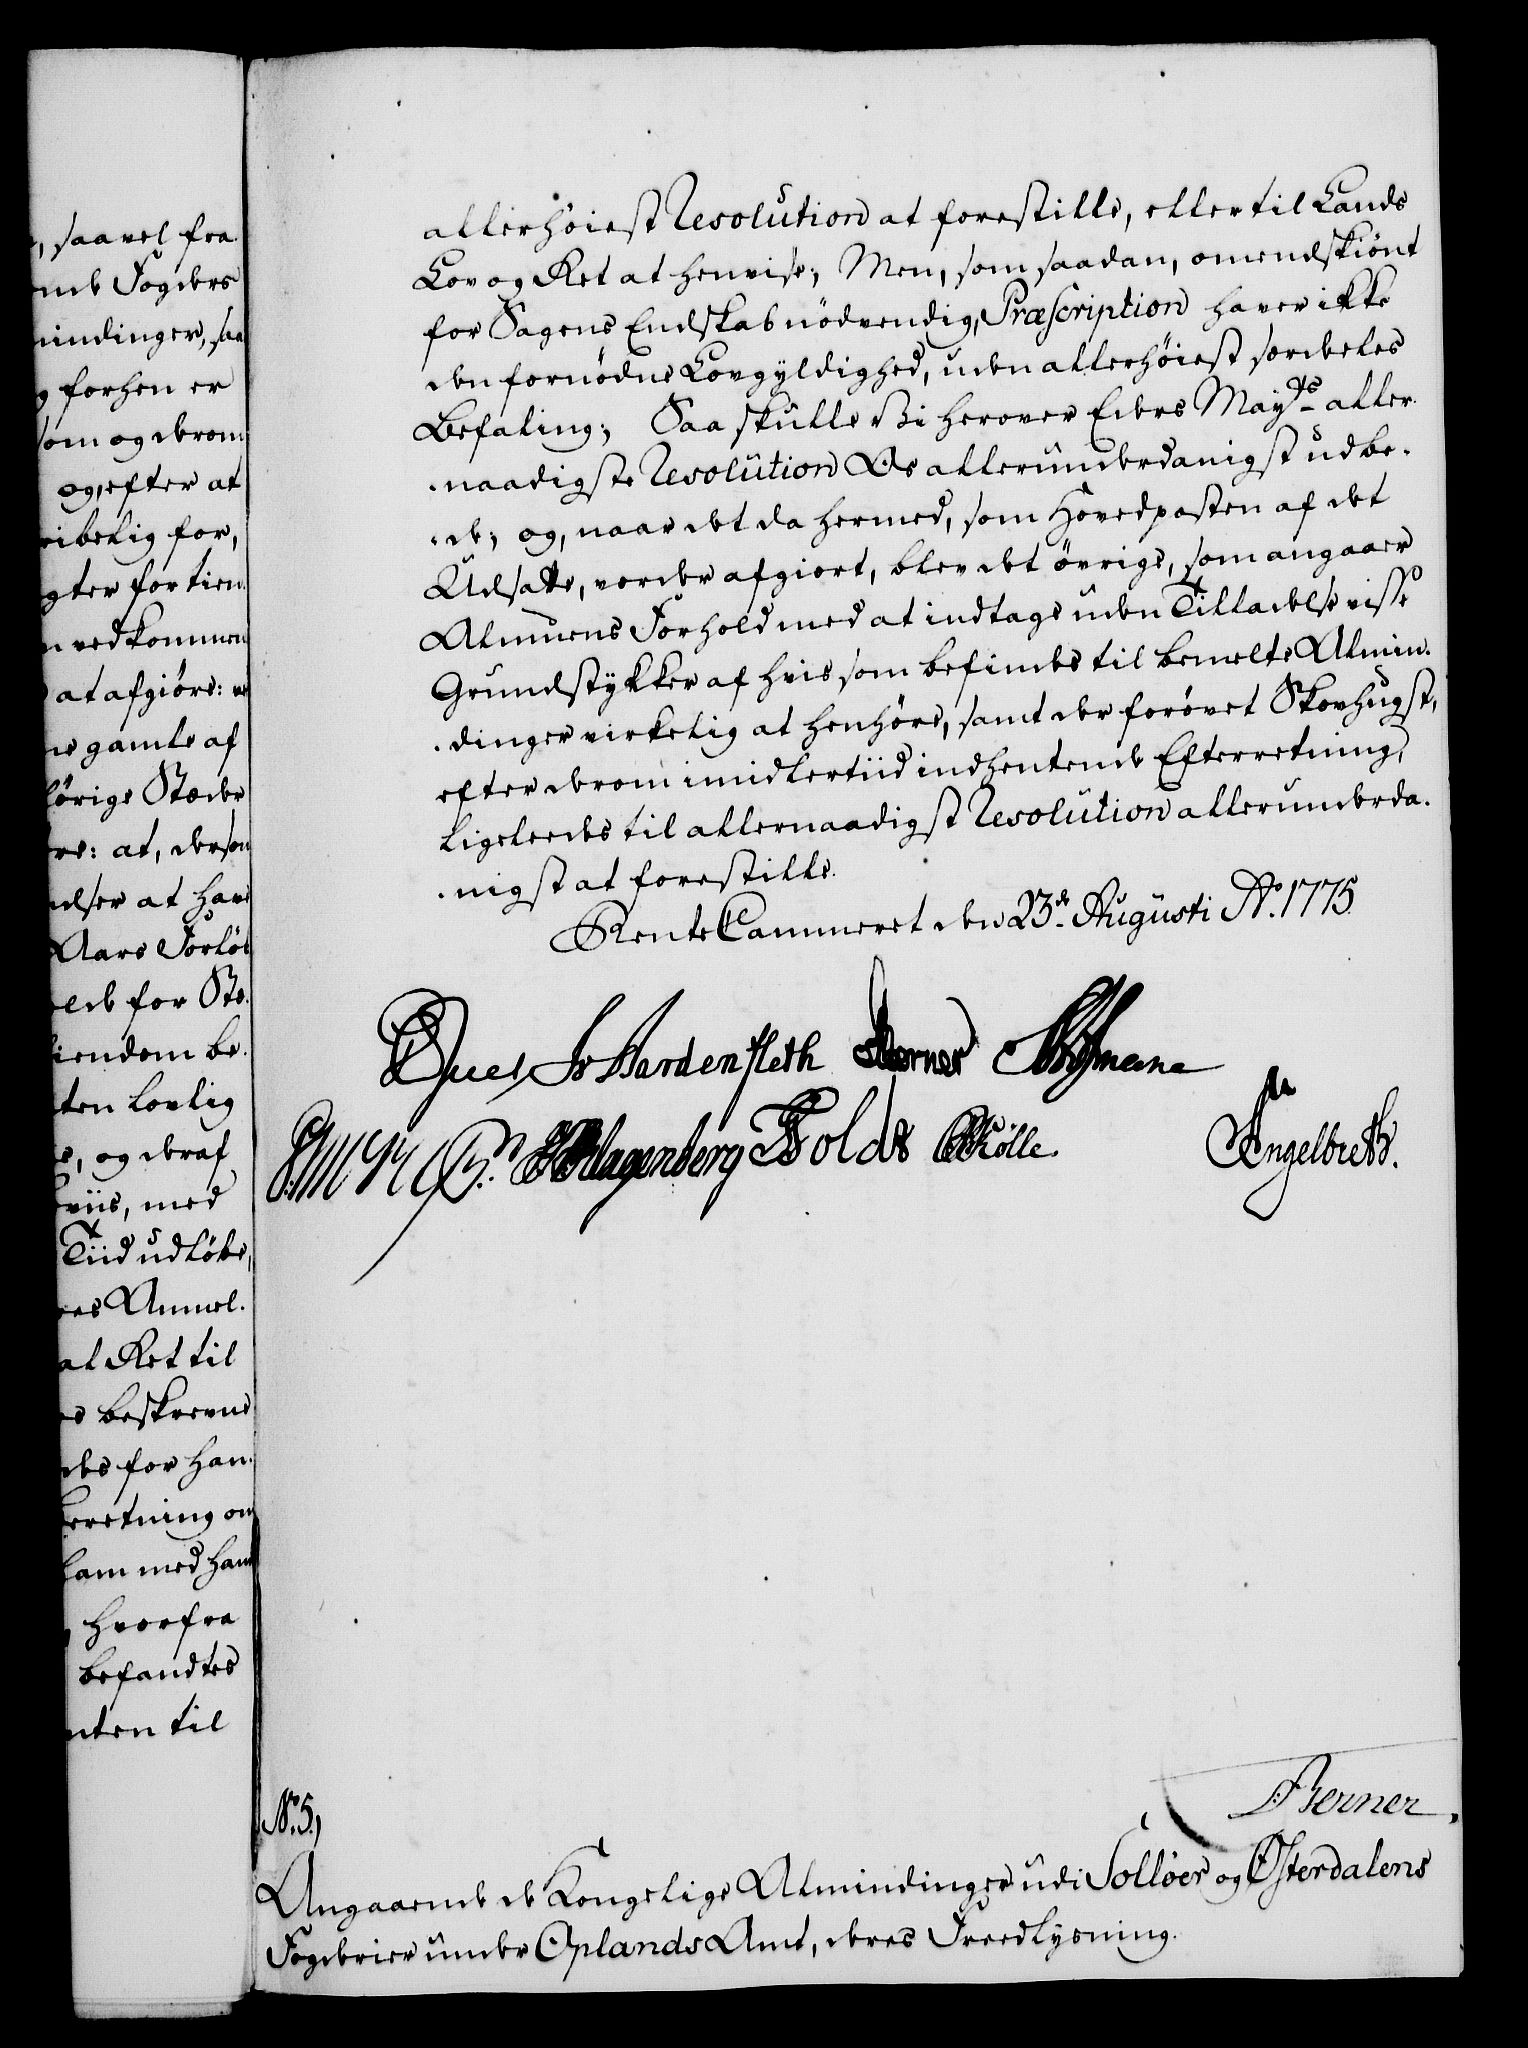 , saavel fra
Fogders
mindinger, saa
forhen er
som og derom
og, efter at
for,
gter fortien
vedkommen
at afgiøre:
gamle af
hørige Stæder
re: at, dersom
at have
Aars Forløb
for
iendom be.
ten lovlig
, og deraf
viis, med
Tiid udløbe,
Anmel.
Ret til
beskrevne
des for han.
beretning om
med ham
hvorfra
befandtes
nten til
allerhöiest Resolution at forestille, eller til Lands
Lov og Ret at henvise; Men, som saadan, omendskiönt
for Sagens Endskab nödvendig, Præscription haver ikke
den fornödne Lovgyldighed, uden allerhöiest særdeles
Befaling; Saa skulle Vi herover Eders Mayts aller.
.naadigste Resolution Os allerunderdanigst udbe.
.de; og, naar det da hermed, som Hovedposten af det
Udsatte, vorder afgiort, blev det övrige, som angaaer
Almuens Forhold med at indtage uden Tilladelse visse
Grundstykker af hvis som befindes til bemelte Almin.
.dinger virkelig at henhöre, samt der forövet Skovhugst,
efter derom imidlertiid indhentende Efterretning,
ligeleedes til allernaadigst Resolution allerunderda.
.nigst at forestille.
Rente Cammeret den 23de Augusti Ao. 1775.
Hardenffleth Berner
Klagenberg Holdt Rølle. Engelbreth.
Berner.
No. 5,
Angaaende de Kongelige Almindinger udi Solløer og Østerdalens
Fogderier under Oplands Amt, deres Freedlysning.